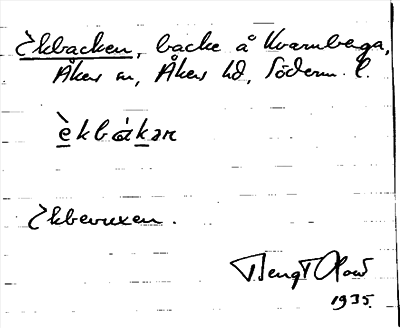 Ekbacken, backe å Kvarnberga,
Åkers sn, Åkers hd, Söderm. l.
è̱kbák̠ən
Ekbevuxen.
Bengt Olow
1935.